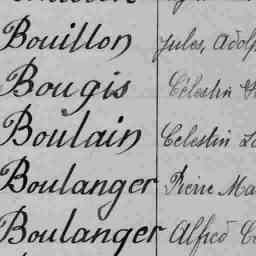 Bouillon Jules, Adolp
Bougis Célestin
Boulain Celestin
Boulanger Pierre Ma
Boulanger Alfred